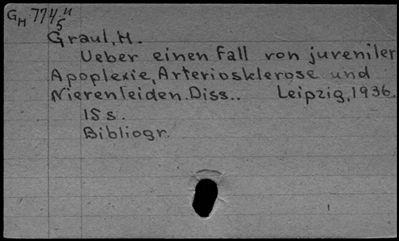 GH 774 u
5
Graul, H.
Ueber einen Fall von juveniler
Apoplexie, Arteriosklerose und
Nierenleiden. Diss.. Leipzig, 1936.
15 s.
Bibliogr.